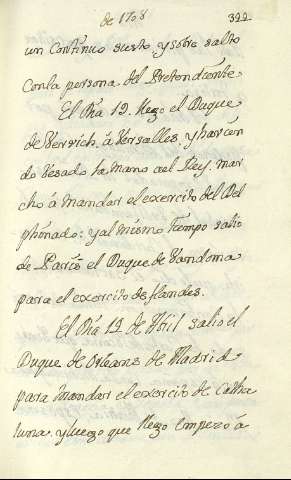 de 1708
399
un continuo susto, y sobre salto
con la persona del Pretendiente.
El Dia 12. llegó el Duque
de Vervich, á Versalles, y havien
do vesado la mano ael Rey, mar
cho á mandar el exercito del Del
phinado: y al mismo tiempo salio
de Paris el Duque de Vandoma
para el exercito de flandes.
El Dia 12 de Abril salio el
Duque de Orleans de Madrid
para mandar el exercito de Catha
luna. y luego que llego empezó á